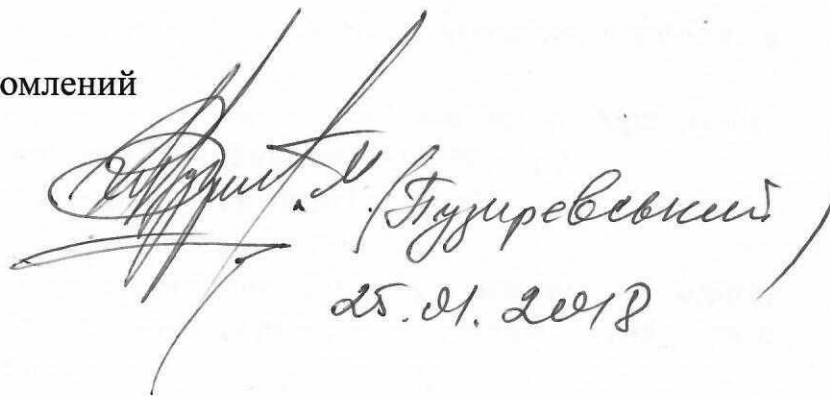 омлений
(Пузиревський)
25.01.2018